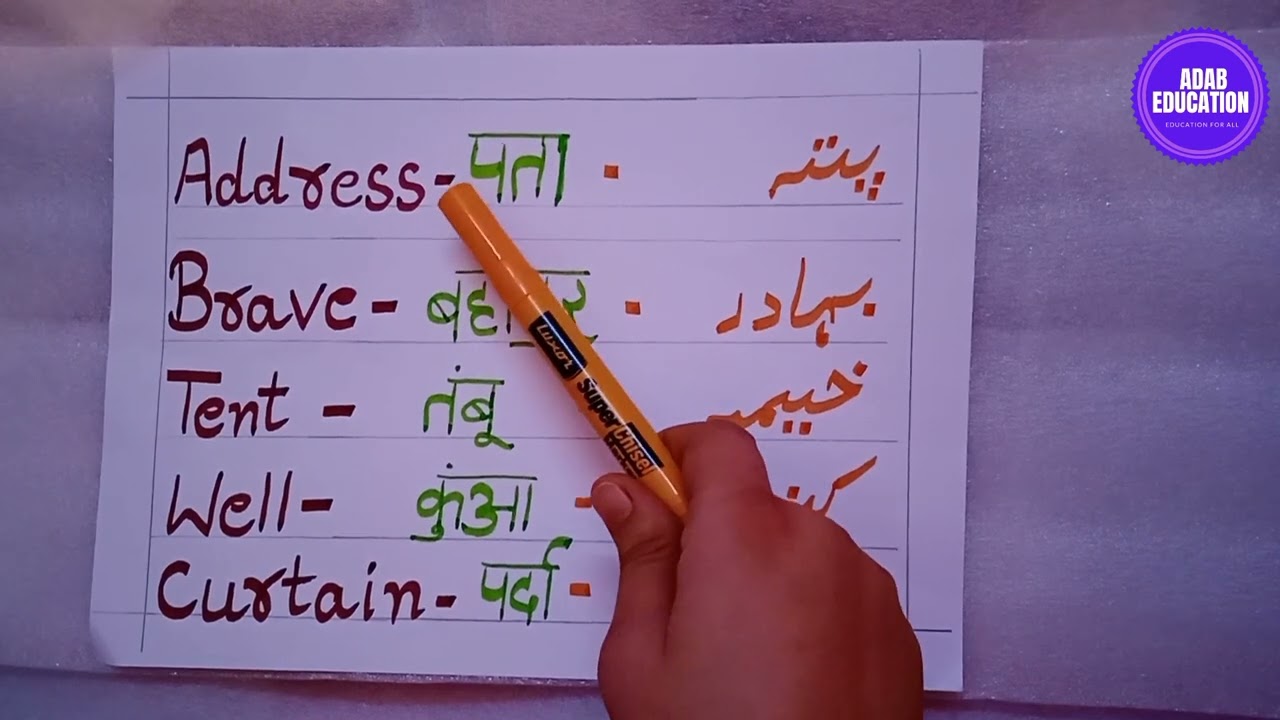 ADAB
EDUCATION
EDUCATION FOR ALL
Address - पता - پتہ
Brave - बहादुर - بہادر
Tent - तंबू خیمہ
Well - कुंआ -
Curtain - पर्दा -
Luxor Super Chisel